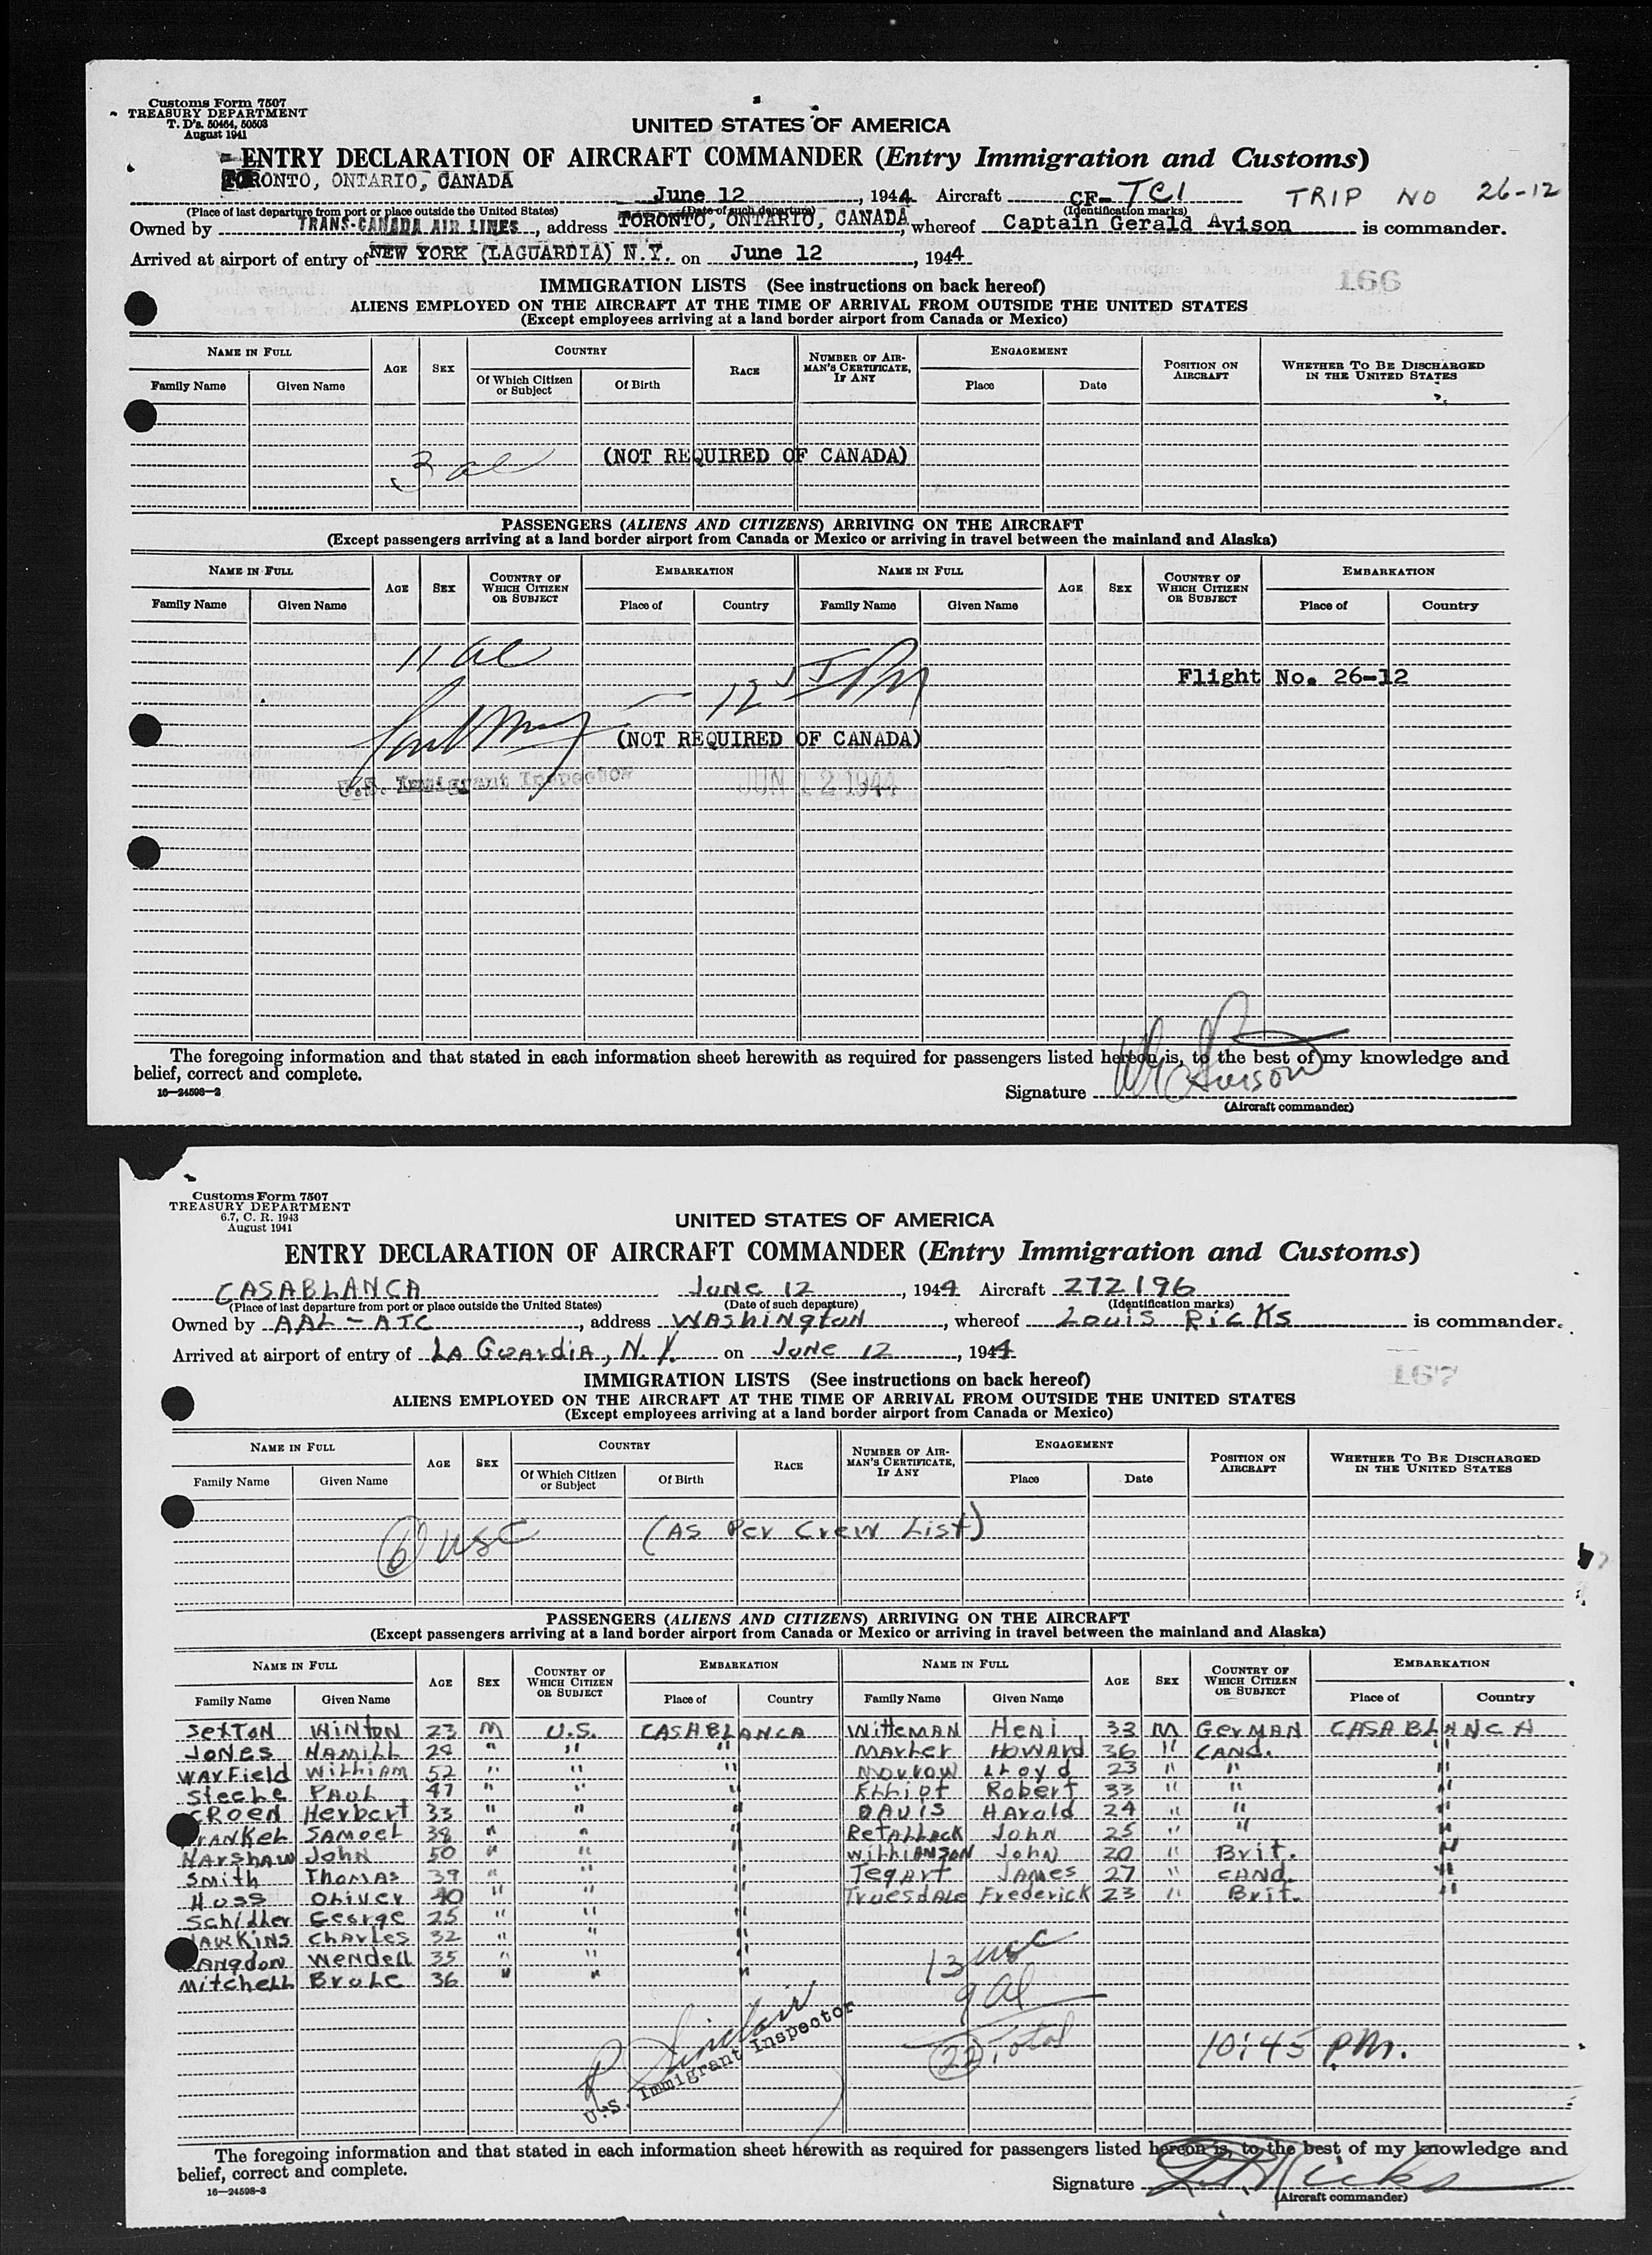 Customs Form 7507
TREASURY DEPARTMENT
T. D's. 50464, 50503
August 1941
UNITED STATES OF AMERICA
ENTRY DECLARATION OF AIRCRAFT COMMANDER (Entry Immigration and Customs)
TORONTO, ONTARIO, CANADA June 12, 1944 Aircraft CF-TCI TRIP NO 26-12
(Place of last departure from port or place outside the United States) (Date of such departure) (Identification marks)
Owned by TRANS-CANADA AIR LINES, address TORONTO, ONTARIO, CANADA, whereof Captain Gerald Avison is commander.
Arrived at airport of entry of NEW YORK (LAGUARDIA) N.Y. on June 12, 1944
166
IMMIGRATION LISTS (See instructions on back hereof)
ALIENS EMPLOYED ON THE AIRCRAFT AT THE TIME OF ARRIVAL FROM OUTSIDE THE UNITED STATES
(Except employees arriving at a land border airport from Canada or Mexico)
NAME IN FULL AGE SEX COUNTRY RACE NUMBER OF AIRMAN'S CERTIFICATE, IF ANY ENGAGEMENT POSITION ON AIRCRAFT WHETHER TO BE DISCHARGED IN THE UNITED STATES
Family Name Given Name Of Which Citizen or Subject Of Birth Place Date
3 al (NOT REQUIRED OF CANADA)
PASSENGERS (ALIENS AND CITIZENS) ARRIVING ON THE AIRCRAFT
(Except passengers arriving at a land border airport from Canada or Mexico or arriving in travel between the mainland and Alaska)
NAME IN FULL AGE SEX COUNTRY OF WHICH CITIZEN OR SUBJECT EMBARKATION NAME IN FULL AGE SEX COUNTRY OF WHICH CITIZEN OR SUBJECT EMBARKATION
Family Name Given Name Place of Country Family Name Given Name Place of Country
11 al
Flight No. 26-12
(NOT REQUIRED OF CANADA)
U.S. Immigrant Inspector JUN 12 1944
The foregoing information and that stated in each information sheet herewith as required for passengers listed hereon is, to the best of my knowledge and
belief, correct and complete.
16—24598-2
Signature Avison
(Aircraft commander)
Customs Form 7507
TREASURY DEPARTMENT
6.7, C. R. 1943
August 1941
UNITED STATES OF AMERICA
ENTRY DECLARATION OF AIRCRAFT COMMANDER (Entry Immigration and Customs)
CASABLANCA June 12, 1944 Aircraft 272196
(Place of last departure from port or place outside the United States) (Date of such departure) (Identification marks)
Owned by AAL-ATC, address Washington, whereof Louis Ricks is commander.
Arrived at airport of entry of La Guardia, N.Y. on June 12, 1944
167
IMMIGRATION LISTS (See instructions on back hereof)
ALIENS EMPLOYED ON THE AIRCRAFT AT THE TIME OF ARRIVAL FROM OUTSIDE THE UNITED STATES
(Except employees arriving at a land border airport from Canada or Mexico)
NAME IN FULL AGE SEX COUNTRY RACE NUMBER OF AIRMAN'S CERTIFICATE, IF ANY ENGAGEMENT POSITION ON AIRCRAFT WHETHER TO BE DISCHARGED IN THE UNITED STATES
Family Name Given Name Of Which Citizen or Subject Of Birth Place Date
6 USC (As Per Crew List)
PASSENGERS (ALIENS AND CITIZENS) ARRIVING ON THE AIRCRAFT
(Except passengers arriving at a land border airport from Canada or Mexico or arriving in travel between the mainland and Alaska)
NAME IN FULL AGE SEX COUNTRY OF WHICH CITIZEN OR SUBJECT EMBARKATION NAME IN FULL AGE SEX COUNTRY OF WHICH CITIZEN OR SUBJECT EMBARKATION
Family Name Given Name Place of Country Family Name Given Name Place of Country
Sexton Winton 23 M U.S. CASABLANCA Witteman Heni 33 M German CASABLANCA
Jones Hamill 29 " " " Marler Howard 36 " Cand. "
Warfield William 52 " " " Morrow Lloyd 23 " " "
Steele Paul 47 " " " Elliot Robert 33 " " "
Croen Herbert 33 " " " Davis Harold 24 " " "
Frankel Samoel 38 " " " Retallack John 25 " " "
Harshaw John 50 " " " Williamson John 20 " Brit. "
Smith Thomas 39 " " " Tegart James 27 " Cand. "
Huss Oliver 40 " " " Truesdale Frederick 23 " Brit. "
Schidler George 25 " " "
Hawkins Charles 32 " " "
Langdon Wendell 35 " " "
Mitchell Brule 36 " " "
13 USC
9 al
22 Total
10:45 PM.
R Sinclair
U.S. Immigrant Inspector
The foregoing information and that stated in each information sheet herewith as required for passengers listed hereon is, to the best of my knowledge and
belief, correct and complete.
16—24598-3
Signature L Ricks
(Aircraft commander)